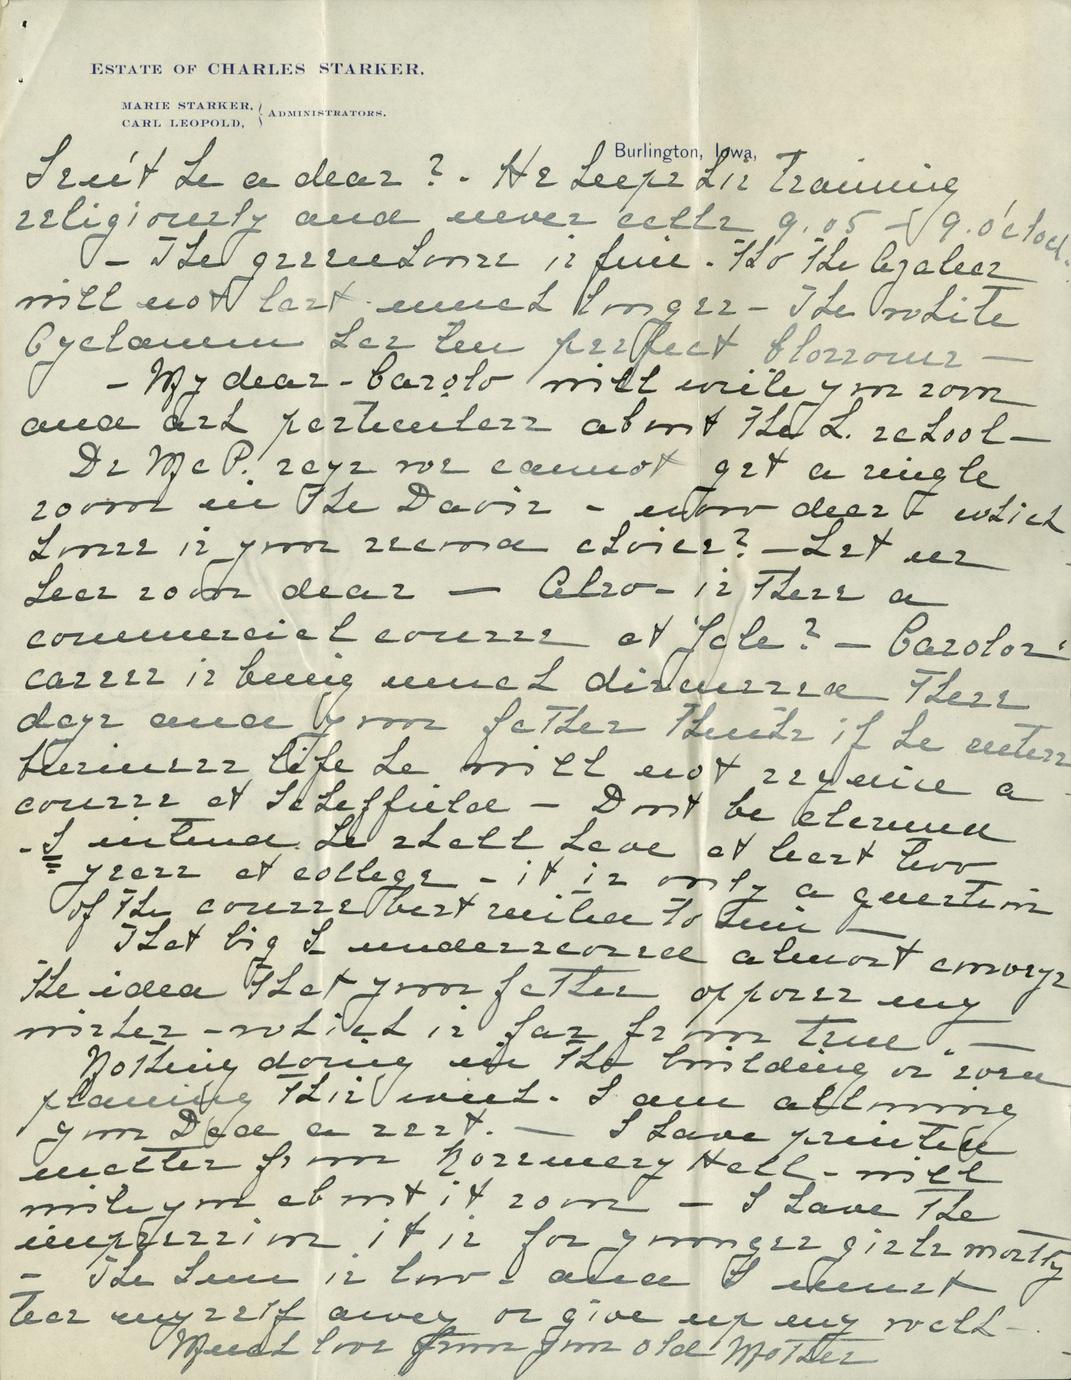 ESTATE OF CHARLES STARKER.
MARIE STARKER,
CARL LEOPOLD,
ADMINISTRATORS.
Burlington, Iowa,
Isn't he a dear? - He keeps his training
religiously and never eats 9.05 - 9. o'clock.
- The greenhouse is fine. Tho the Azalea
will not last much longer - The white
Cyclamen has ten perfect blossoms -
- My dear - Carolo will write you soon
and ask particulars about the L. school -
Dr McP. says we cannot get a single
room in the Davis - now dear - which
house is your second choice? - Let us
hear soon dear - Also - is there a
commercial course at Yale? - Carolos'
career is being much discussed these
days and your father thinks if he enters
business life he will not require a
course at Scheffield - Dont be alarmed
- I intend he shall have at least two
years at college - it is only a question
of the course best suited to him -
That big I underscored almost conveys
the idea that your father opposes my
wishes - which is far from true. -
Nothing doing in the building or "room
planning this week. I am allowing
your Dad a rest. - I have printed
matter from Rosemary Hall - will
write you about it soon - I have the
impression it is for younger girls mostly
- The Sun is low - and I must
tear myself away or give up my walk -
Much love from your old Mother